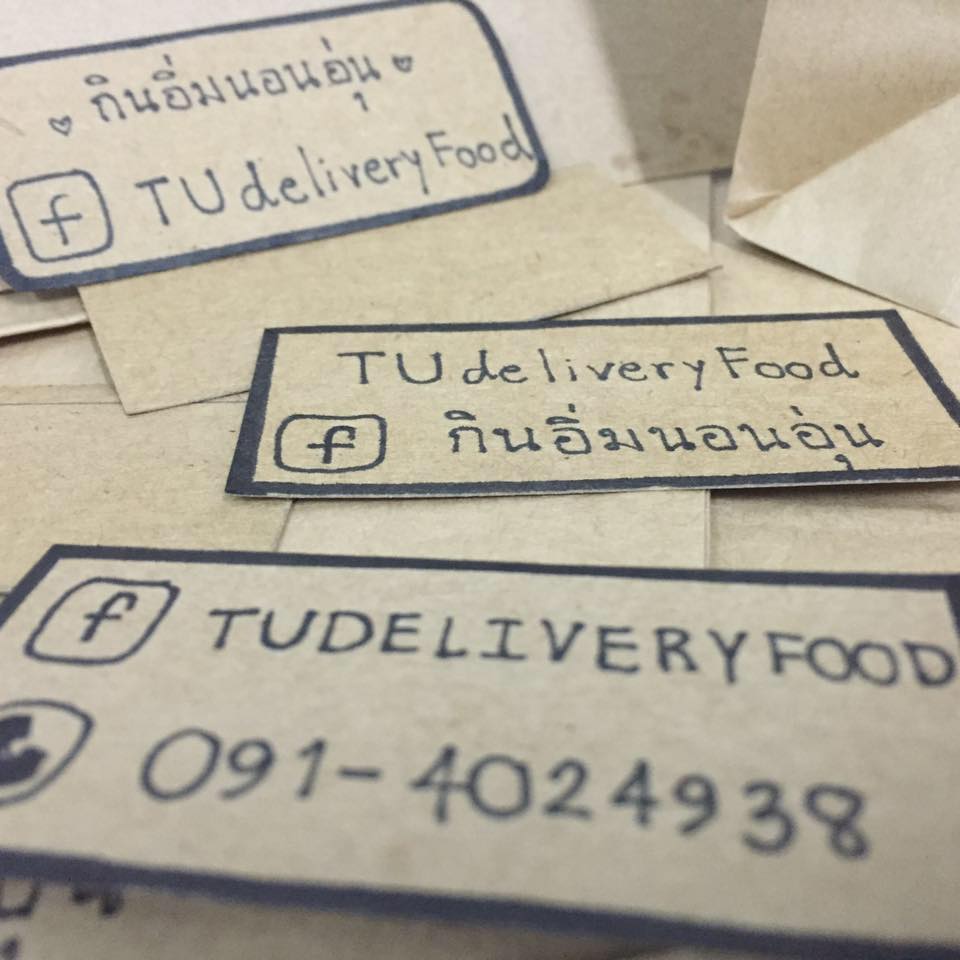 กินอิ่มนอนอุ่น
TUdeliveryFood
TUdeliveryFood
กินอิ่มนอนอุ่น
TUDELIVERYFOOD
091-4024938